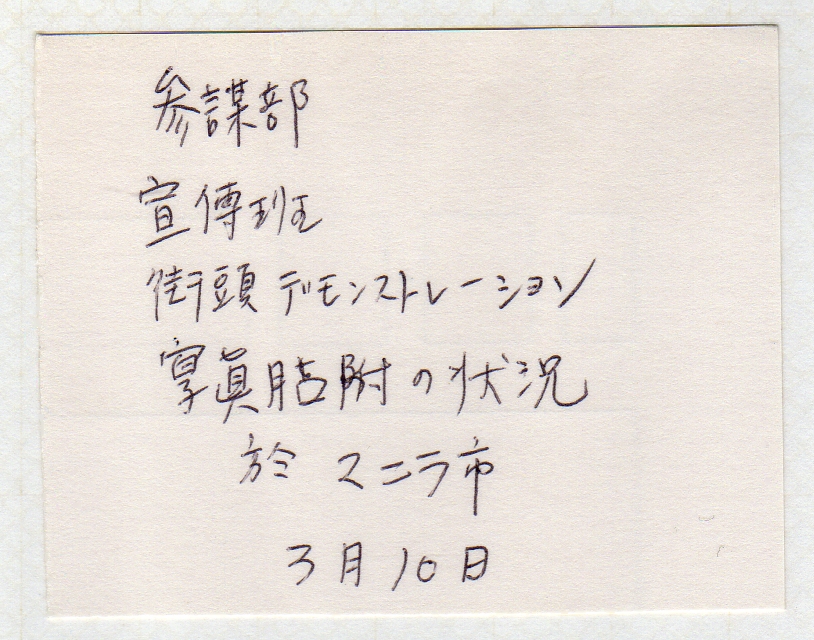 参謀部
宣傳班
街頭デモンストレーション
寫眞貼附の状況
於 マニラ市
3月10日